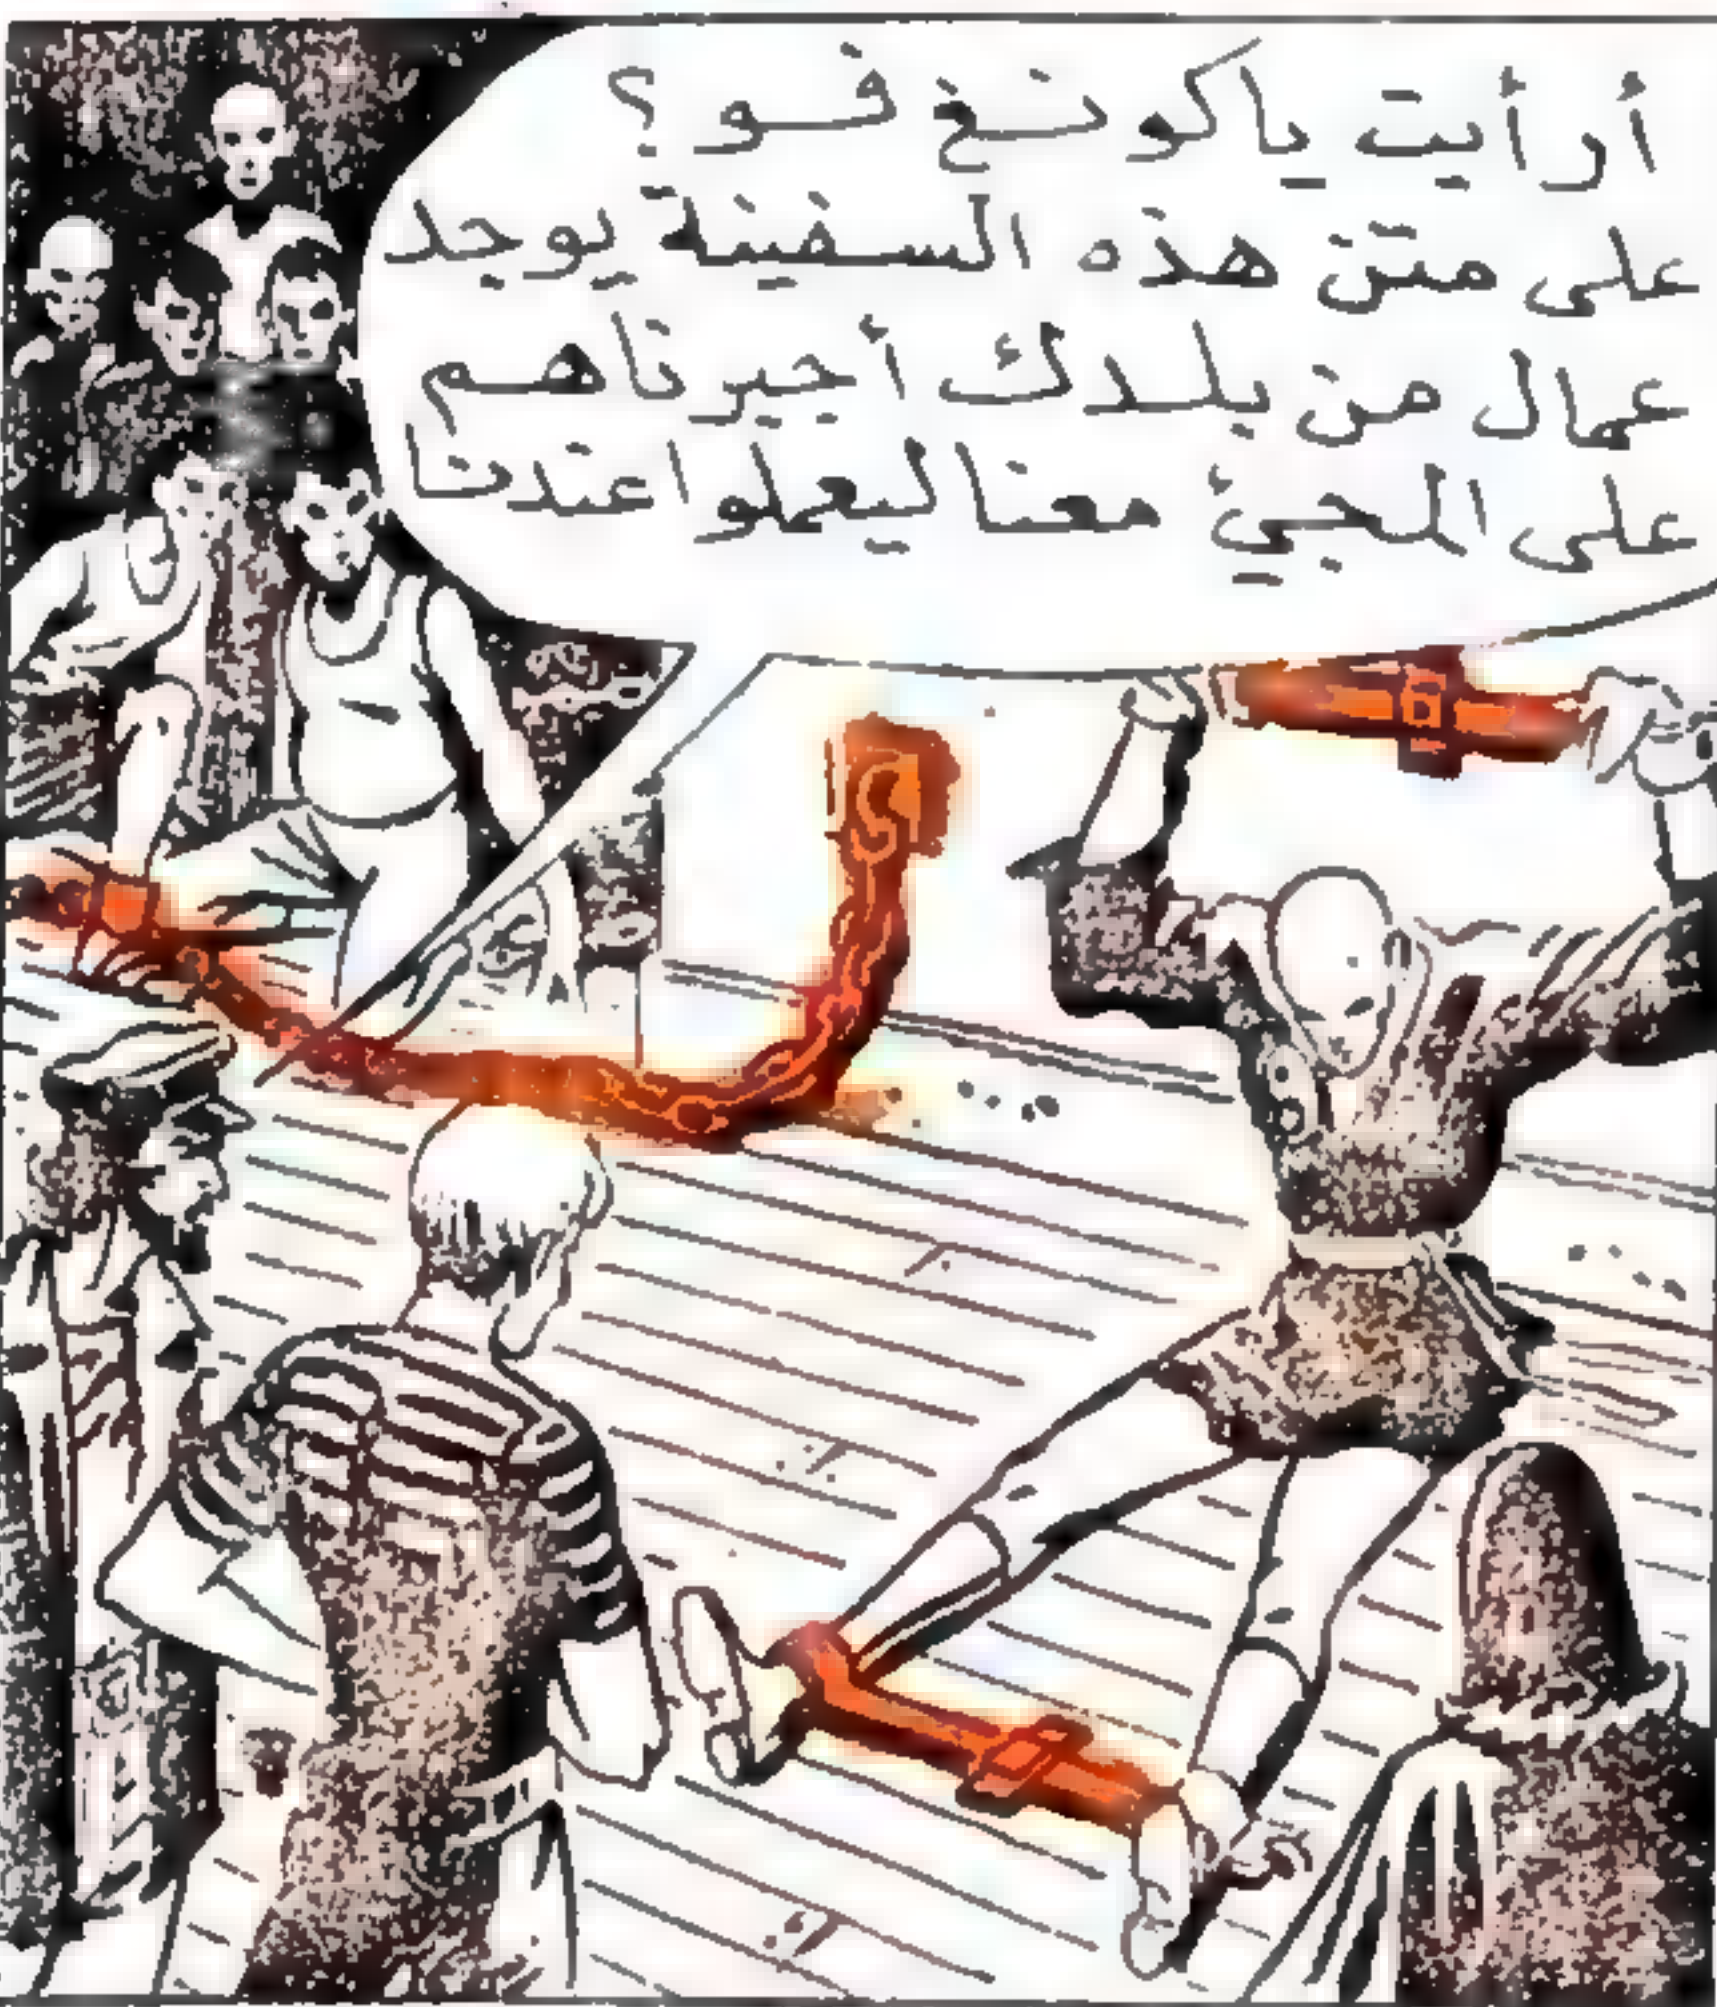 أرأيت ياكونغ فو؟
على متن هذه السفينة يوجد
عمال من بلدك أجبرناهم
على المجيئ معنا ليعملوا عندنا